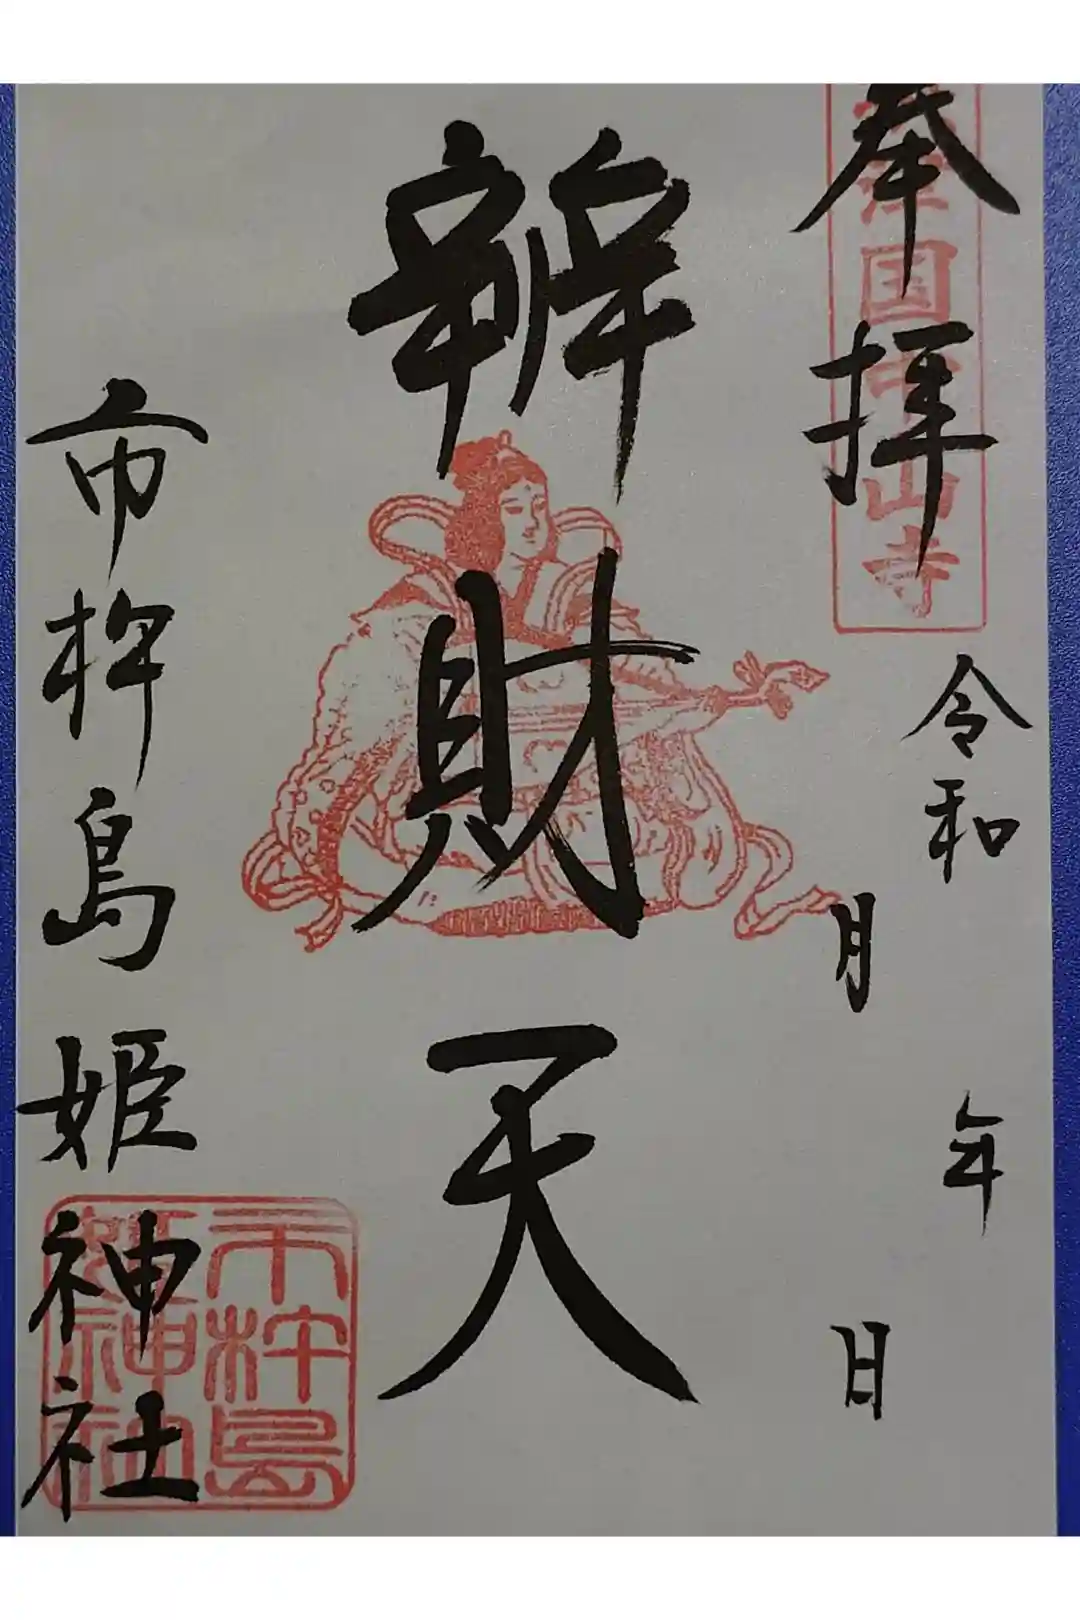 奉拝
国中山寺
令和 年
月 日
辨財天
市杵島姫神社
市杵島
姫神社